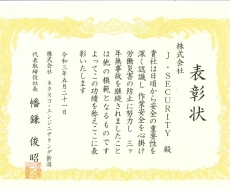 表彰状
株式会社
J・SECURITY 殿
貴社は日頃から安全の重要性を
深く認識し作業安全を心掛け
労働災害の防止に努力し 三ヶ
年無事故を継続されましたこと
は他の模範となるものです
よってこの功績を称えここに表
彰いたします
令和三年五月二十一日
株式会社 ネクスコ・エンジニアリング新潟
代表取締役社長 幡鎌俊昭